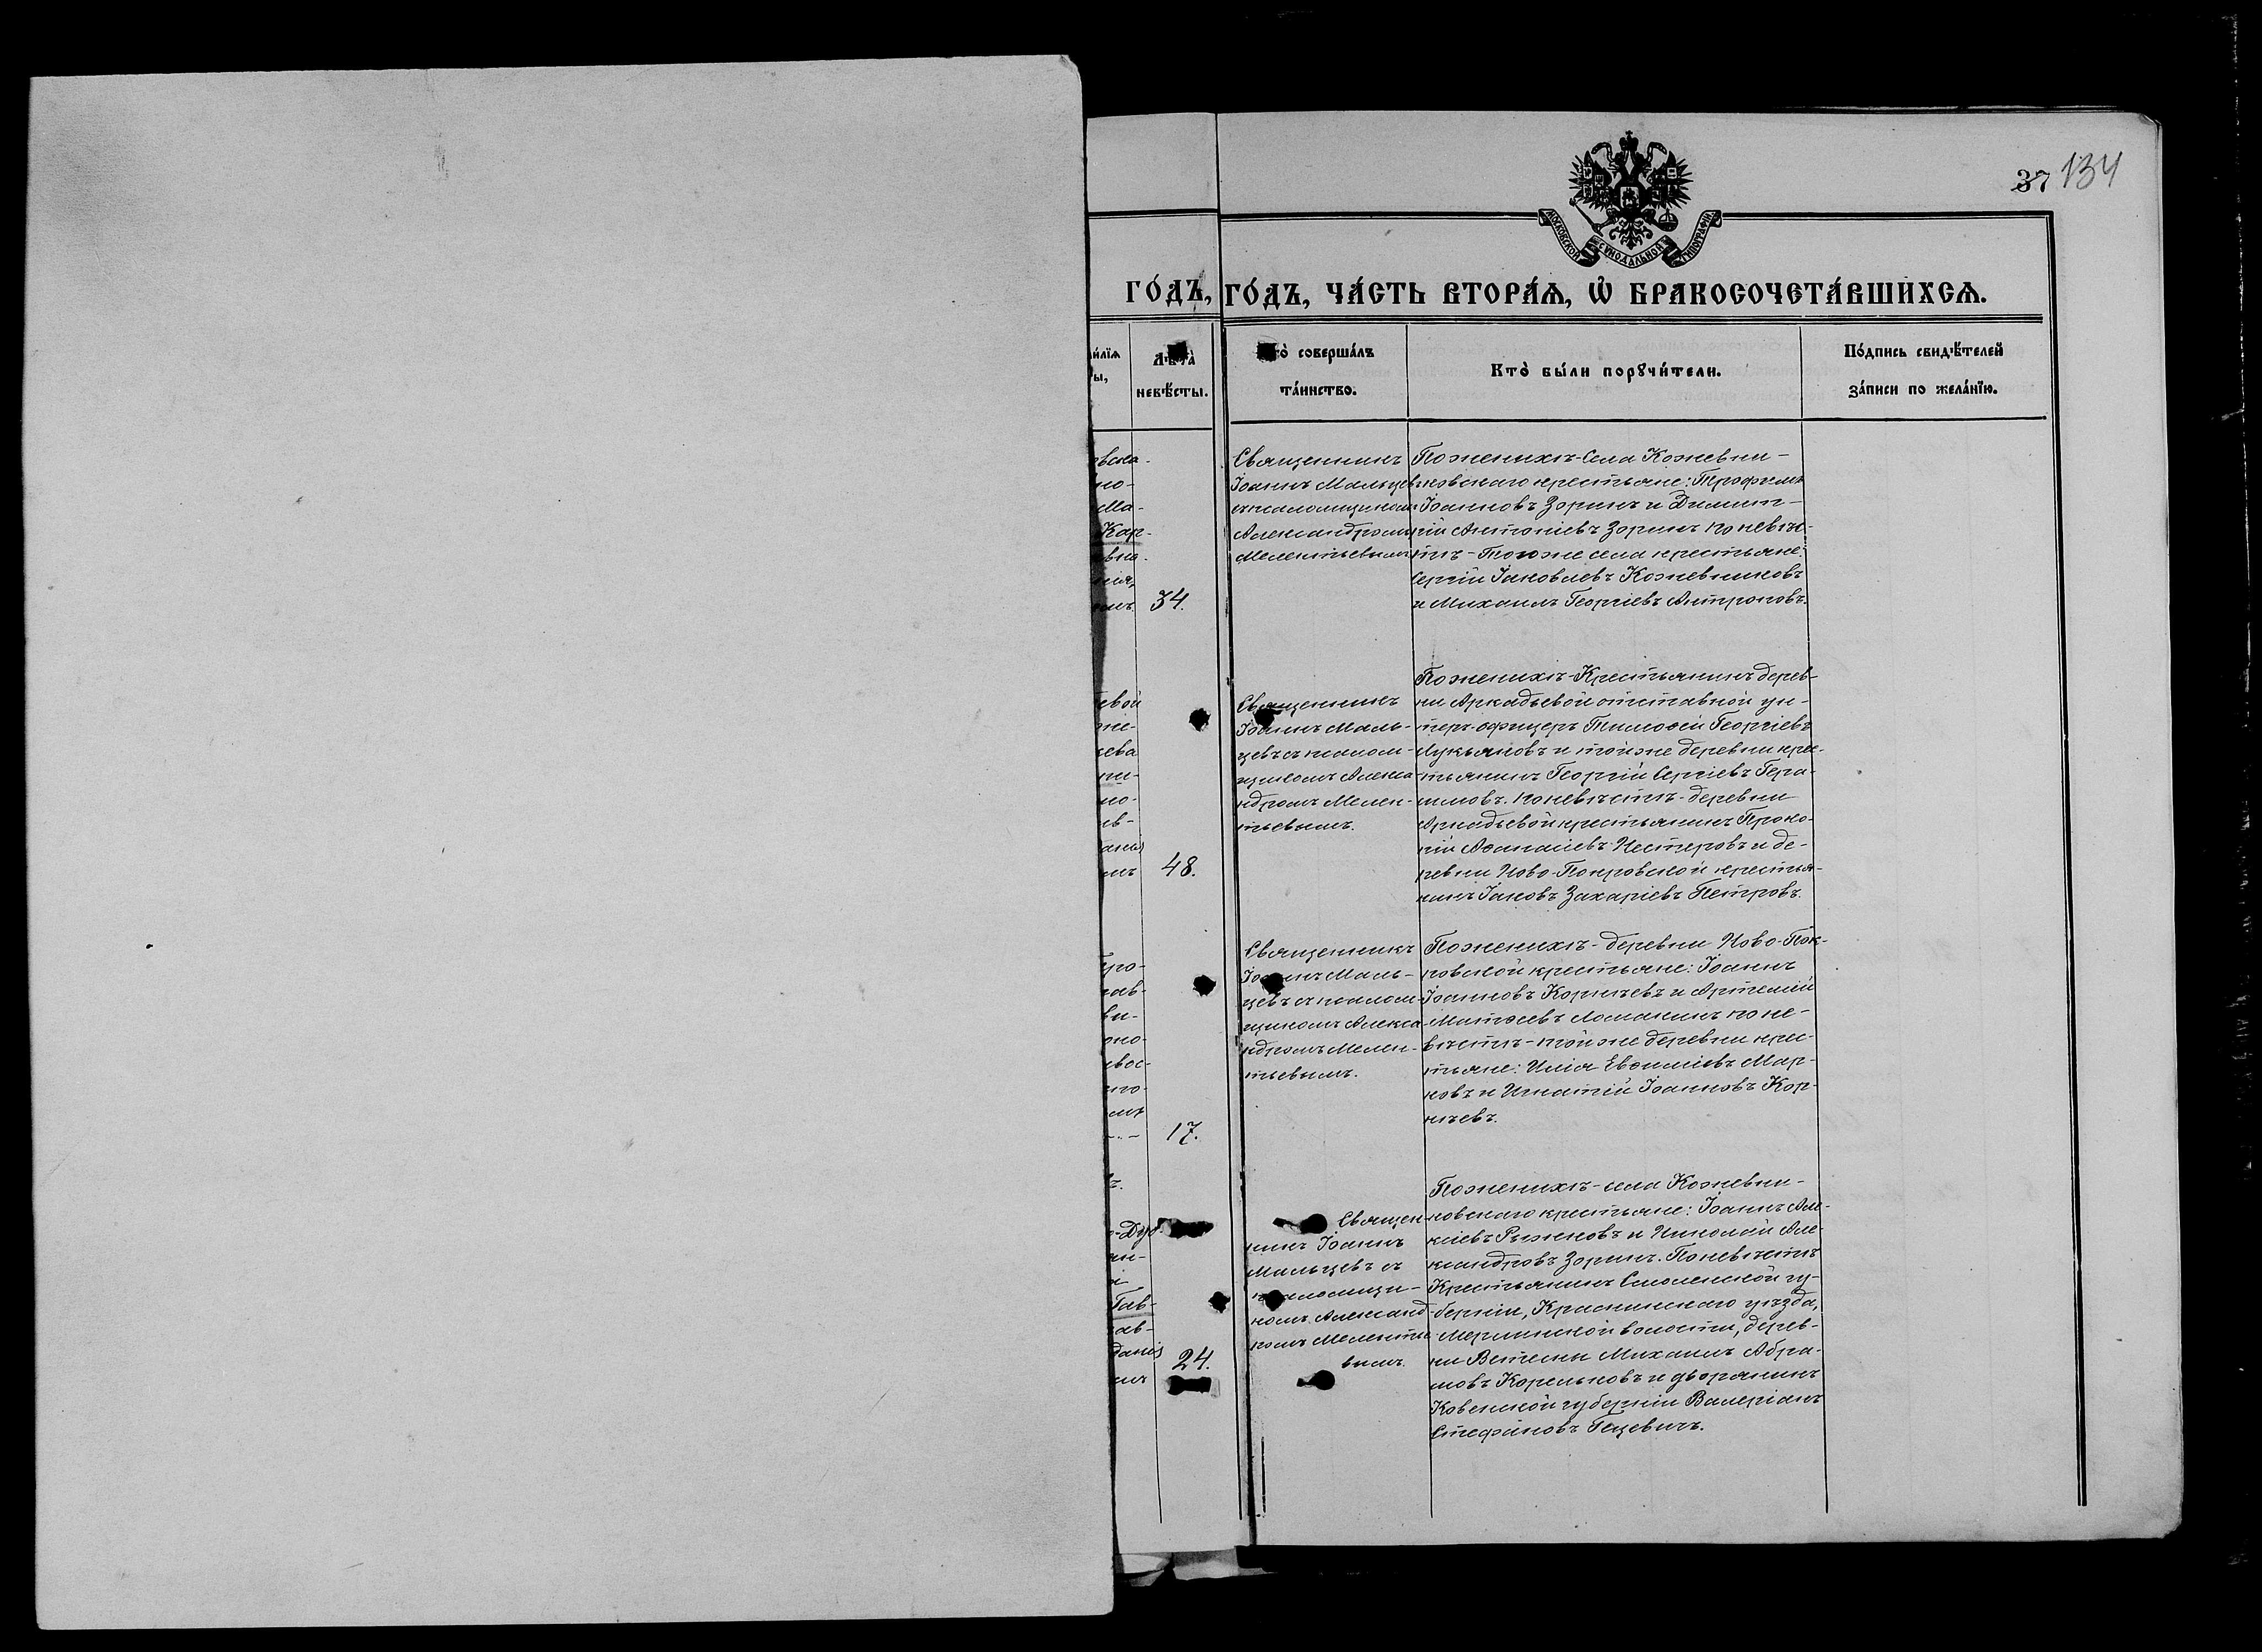 37 134
МОСКОВСКОЙ СѴНОДАЛЬНОЙ ТИПОГРАФІИ
ГО́ДЪ,
ГО́ДЪ, ЧА́СТЬ ВТОРА́Ѧ, Ѽ БРАКОСОЧЕТА́ВШИХСѦ.
Лѣта̀
невѣ́сты.
совершáлъ
та́инство.
Кто̀ бы́ли порꙋчи́тели.
По́дпись свидѣ́телей
за́писи по жела́нїю.
34.
Священникъ
Іоаннъ Мальцев
съ псаломщиком
Александром
Мелентьевым
По женихѣ - Села Кожевни-
ковскаго крестьяне: Трофимъ
Іоанновъ Зоринъ и Димит-
рій Антоніевъ Зоринъ по невѣ-
стѣ - Того же села крестьяне:
Сергій Іаковлевъ Кожевниковъ
и Михаилъ Георгіевъ Антроповъ.
48.
Священникъ
Іоаннъ Маль-
цевъ съ псалом-
щикомъ Алекса
ндромъ Мелен-
тьевымъ.
По женихѣ - Крестьянинъ дерев-
ни Аркадьевой отставной ун-
теръ-офицеръ Тимоѳей Георгіевъ
Лукьяновъ и той же деревни крес-
тьянинъ Георгій Сергіевъ Гера-
симовъ. по невѣстѣ - деревни
Аркадьевой крестьянинъ Проко-
пій Аѳанасіевъ Нестеровъ и де-
ревни Ново-Покровской крестья-
нинъ Іаковъ Захаріевъ Петровъ.
17.
Священникъ
Іоаннъ Маль-
цевъ съ псалом-
щикомъ Алекса
ндромъ Мелен-
тьевымъ.
По женихѣ - деревни Ново-Пок-
ровской крестьяне: Іоаннъ
Іоанновъ Корнѣевъ и Артемій
Матѳеевъ Ломакинъ по не-
вѣстѣ - той же деревни крес-
тьяне: Илія Евѳиміевъ Мар-
ковъ и Игнатій Іоанновъ Кор-
нѣевъ.
24.
Священ-
никъ Іоаннъ
Мальцевъ съ
псаломщи-
комъ Александ
ромъ Мелентье
вымъ.
По женихѣ - села Кожевни-
ковскаго крестьяне: Іоаннъ Але-
ксіевъ Рыжковъ и Николай Але-
ксандровъ Зоринъ. По невѣстѣ
Крестьянинъ Смоленской гу-
берніи, Краснинскаго уѣзда,
Мерлинской волости, дерев-
ни Михаилъ Абра-
мовъ Корельковъ и дворянинъ
Ковенской губерніи Валеріанъ
Стефановъ Гецевичъ.